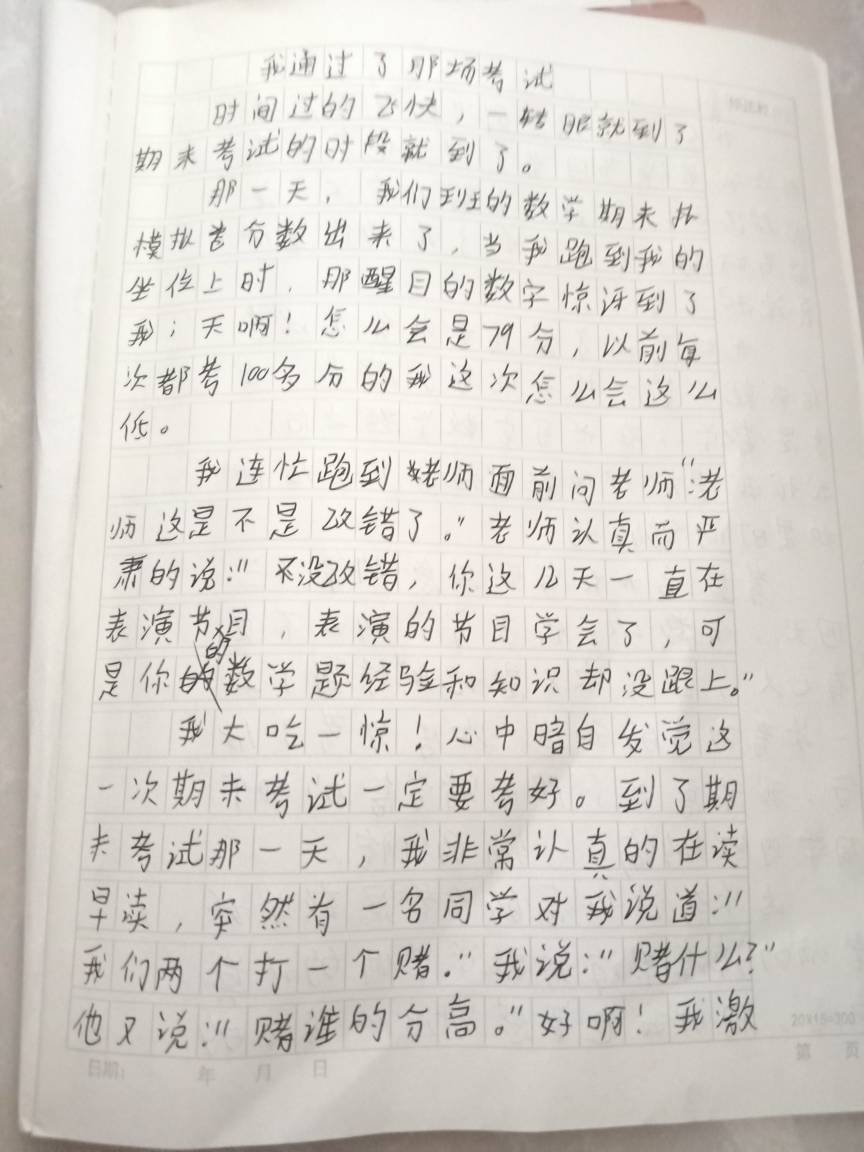 我通过了那场考试
时间过的飞快，一转眼就到了
期末考试的时段就到了。
那一天，我们班的数学期末
模拟卷分数出来了，当我跑到我的
坐位上时，那醒目的数字惊讶到了
我；天啊！怎么会是79分，以前每
次都考100多分的我这次怎么会这么
低。
我连忙跑到老师面前问老师“：老
师这是不是改错了。”老师认真而严
肃的说：“不没改错，你这几天一直在
表演节目，表演的节目学会了，可
是你的数学题经验和知识却没跟上。”
我大吃一惊！心中暗自发觉这
一次期末考试一定要考好。到了期
末考试那一天，我非常认真的在读
早读，突然有一名同学对我说道：“
我们两个打一个赌。”我说：“赌什么？”
他又说：“赌谁的分高。”好啊！我激
日期： 年 月 日
20X15=300
第 页